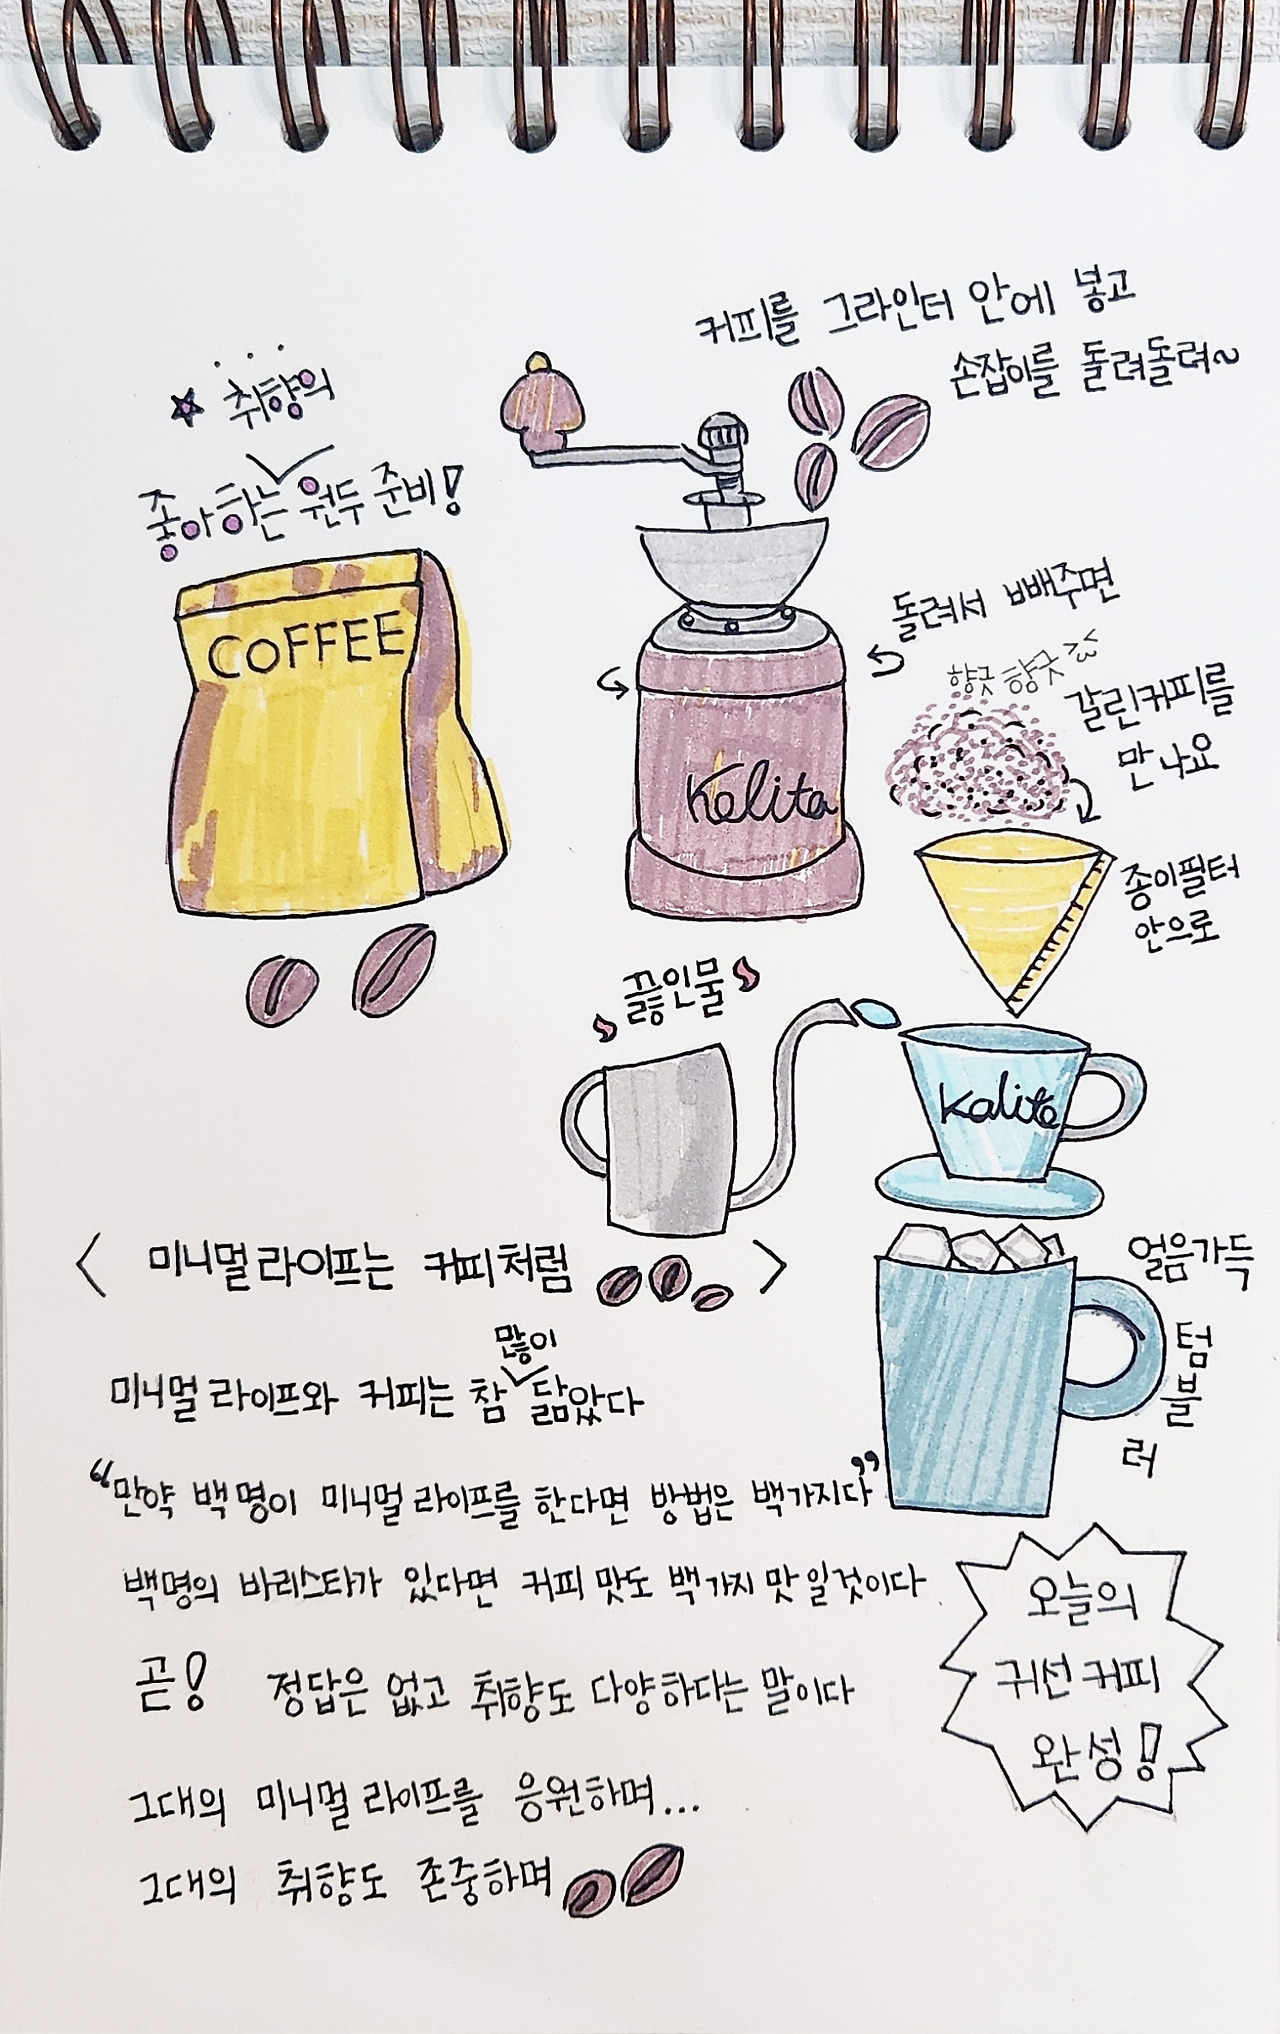 취향의
좋아하는 원두 준비!
COFFEE
커피를 그라인더 안에 붛고
손잡이를 돌려돌려~
Kalita
돌려서 빼주면
향긋 향긋
갈린커피를
만나요
종이필터
안으로
끓인물
Kalita
얼음가득
텀
블
러
오늘의
귀선 커피
완성!
< 미니멀 라이프는 커피처럼 >
많이
미니멀 라이프와 커피는 참 닮았다
"만약 백명이 미니멀 라이프를 한다면 방법은 백가지다"
백명의 바리스타가 있다면 커피 맛도 백가지 맛일것이다
곧! 정답은 없고 취향도 다양하다는 말이다
그대의 미니멀 라이프를 응원하며...
그대의 취향도 존중하며